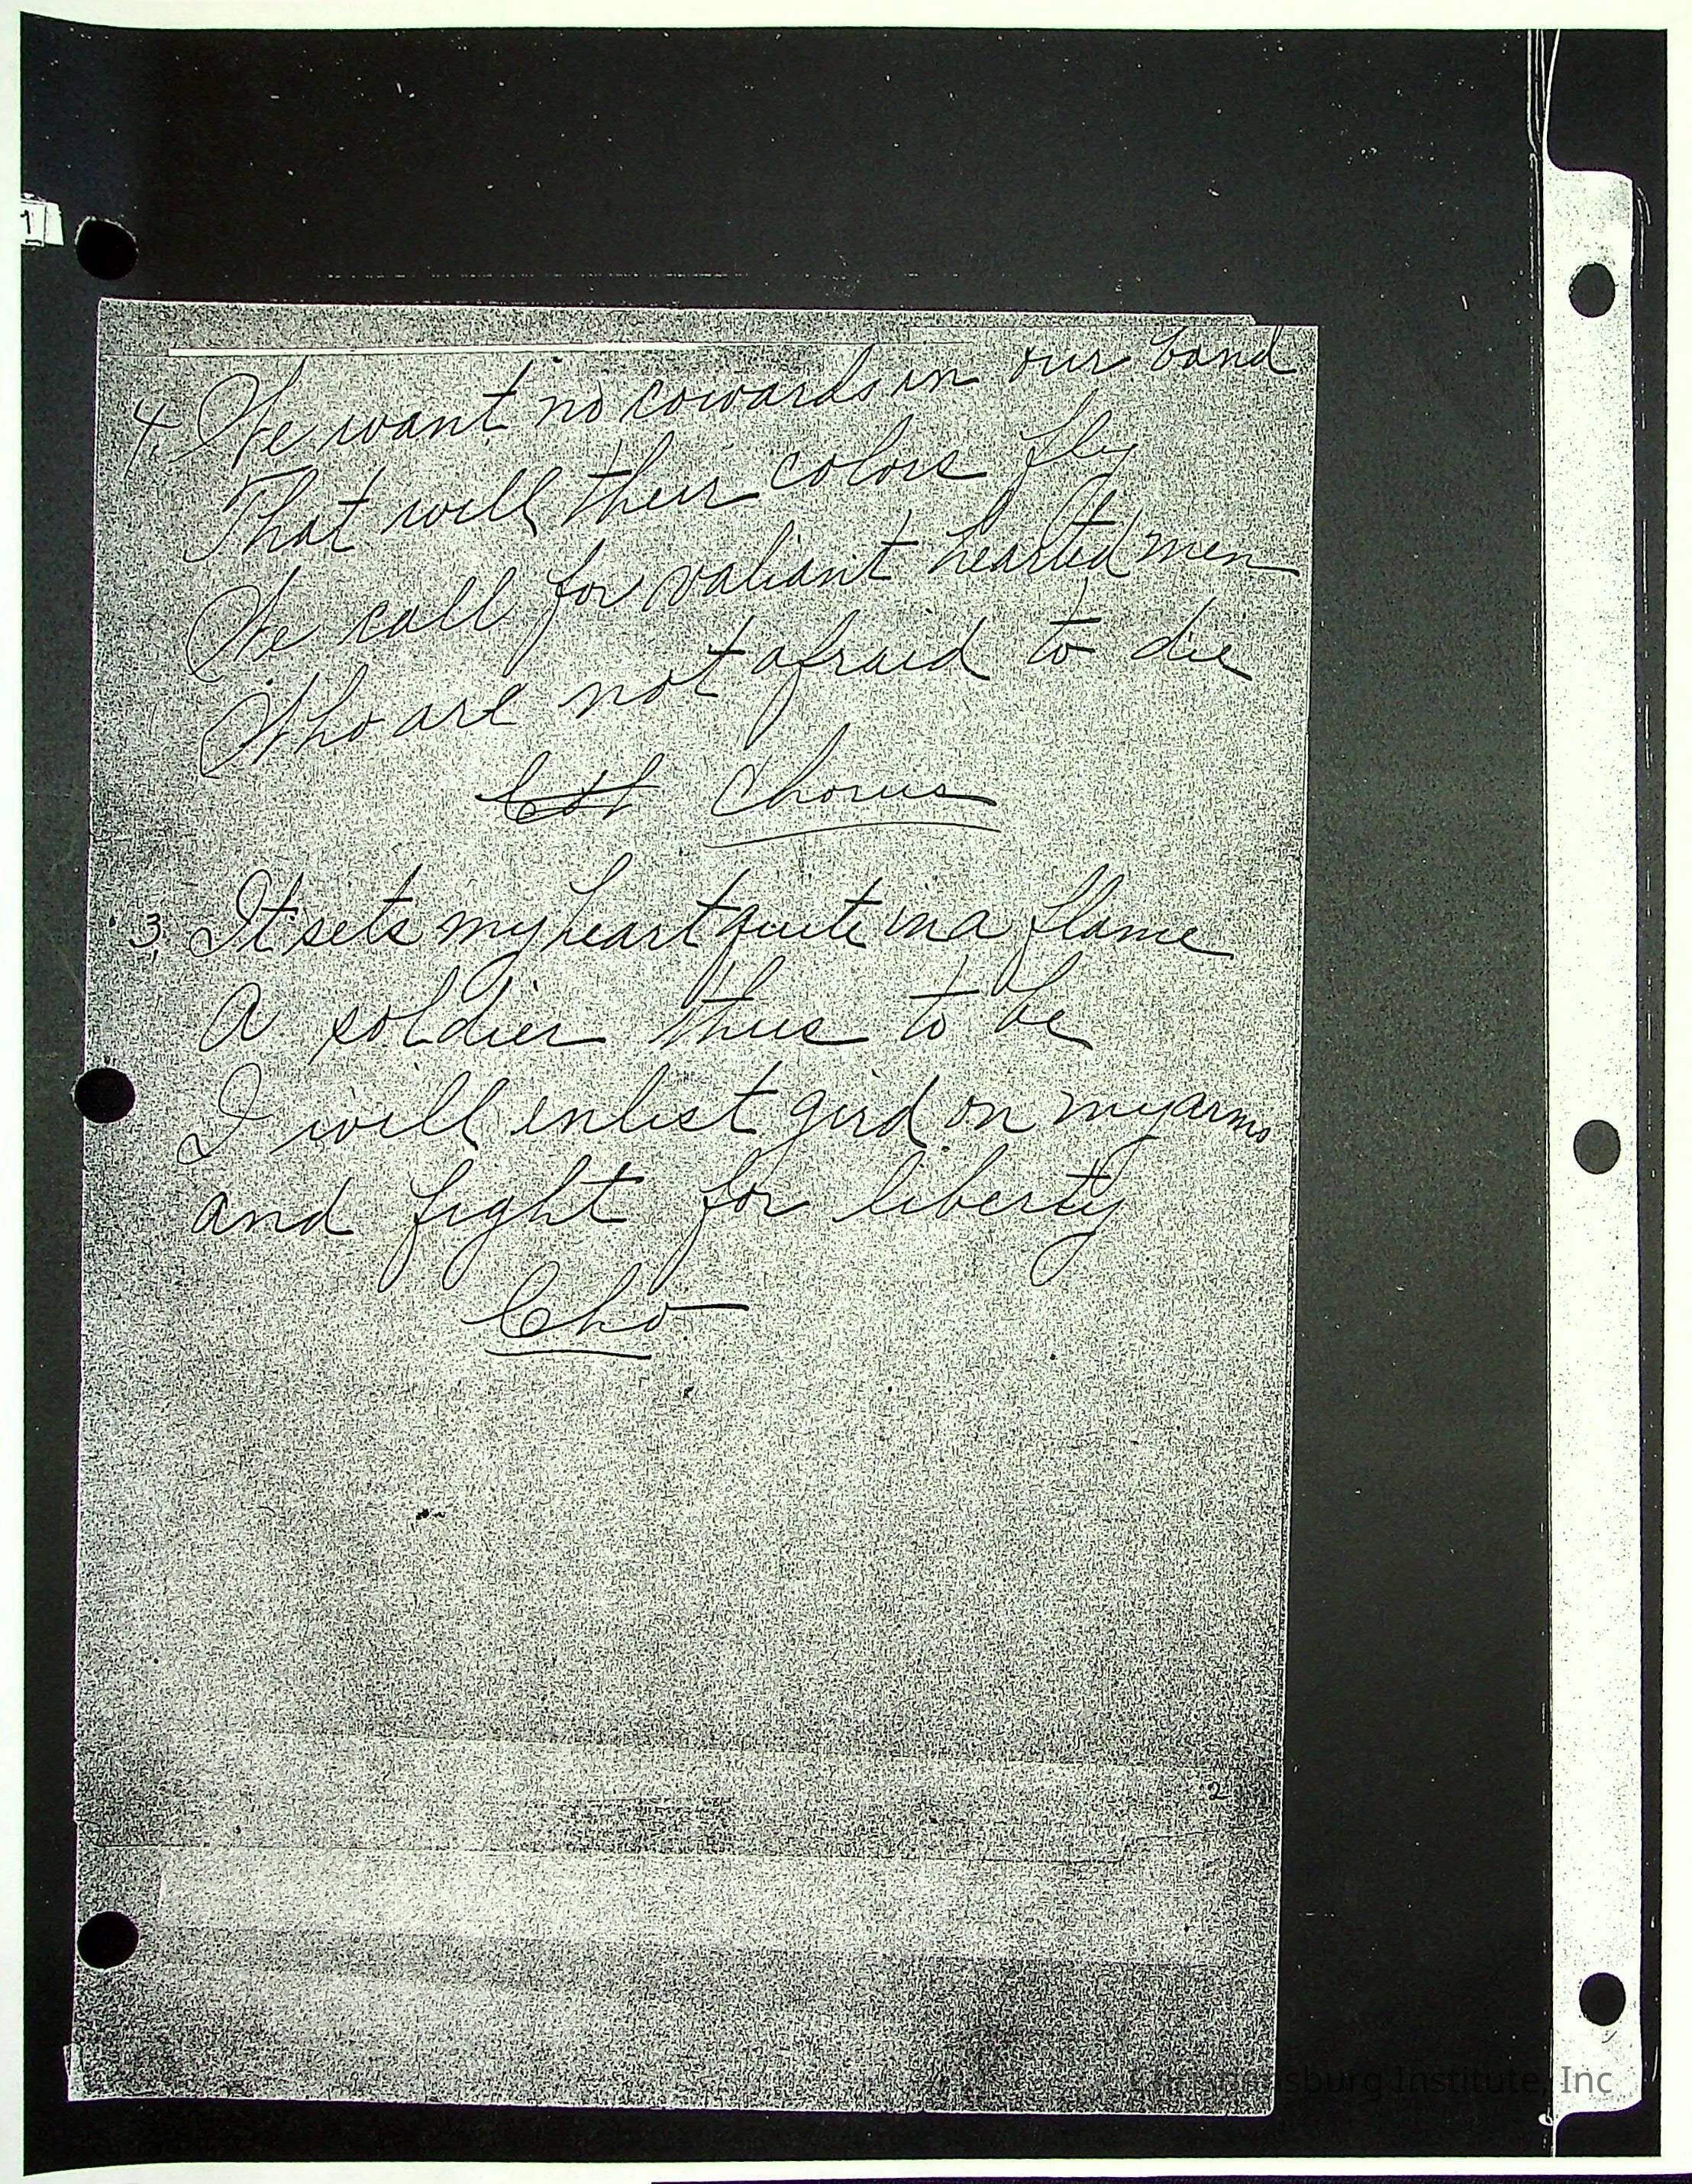 4. We want no cowards in our band
That will their colors fly
We call for valiant hearted men
Who are not afraid to die
Chorus
3, It sets my heart quite in a flame
A soldier thus to be
I will enlist gird on my arms
and fight for liberty
Cho—
2
1
Institute, Inc